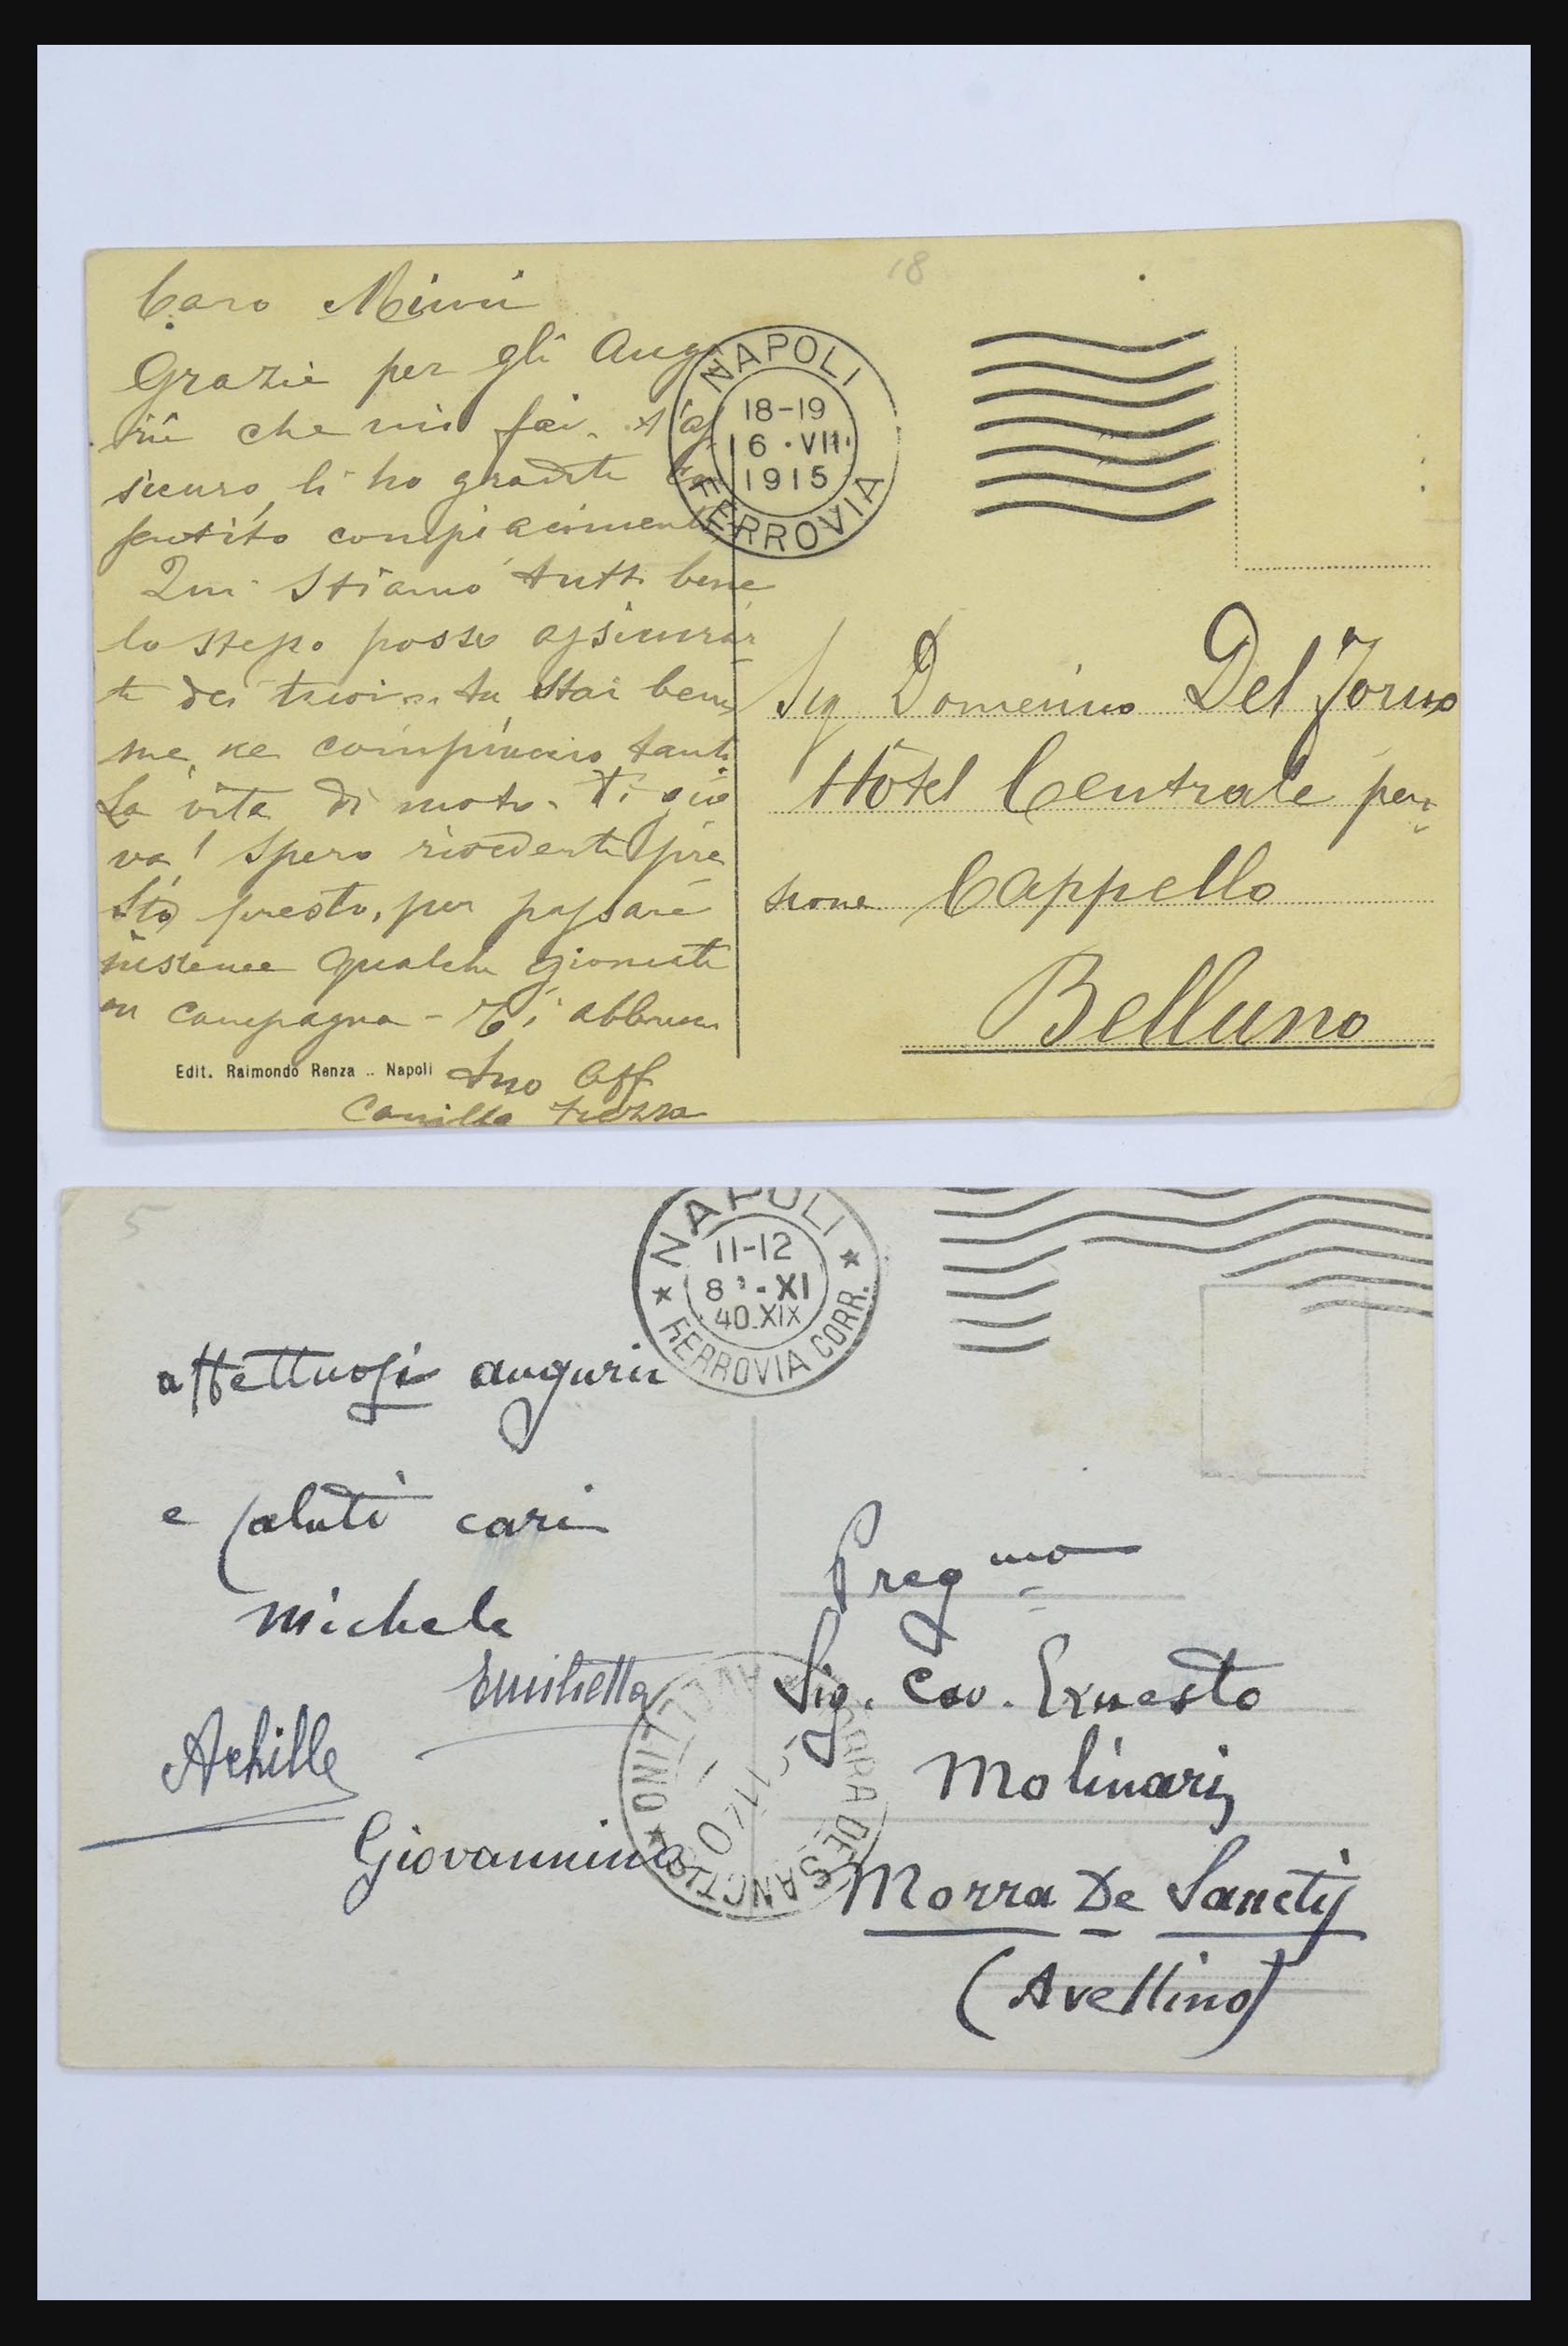 18
Caro Mimì
Grazie per gli Augu
rii che mi fai. T'as
sicuro, li ho graditi con
sentito compiacimento
Qui stiamo tutti bene
lo stesso posso assicurar
ti dei tuoi. tu stai bene
me ne compiaccio tanto
La vita di moto Ti gio
va! Spero rivederti pre
sto presto, per passare
insieme qualche giornata
in campagna - Ti abbraccio
tuo aff
Camillo
Edit. Raimondo Renza .. Napoli
NAPOLI
18-19
6 · VII
1915
FERROVIA
Sig Domenico Del
Hôtel Centrale pen
sione Cappello
Belluno
5
NAPOLI
11-12
8 - XI
40.XIX
FERROVIA CORR.
affettuosi augurii
e saluti cari
Michele
Emilietta
Achille
Giovannino
Preg mo
Sig. Cav. Ernesto
Molinari
Morra De Sanctis
(Avellino)
MORRA DE SANCTIS
AVELLINO